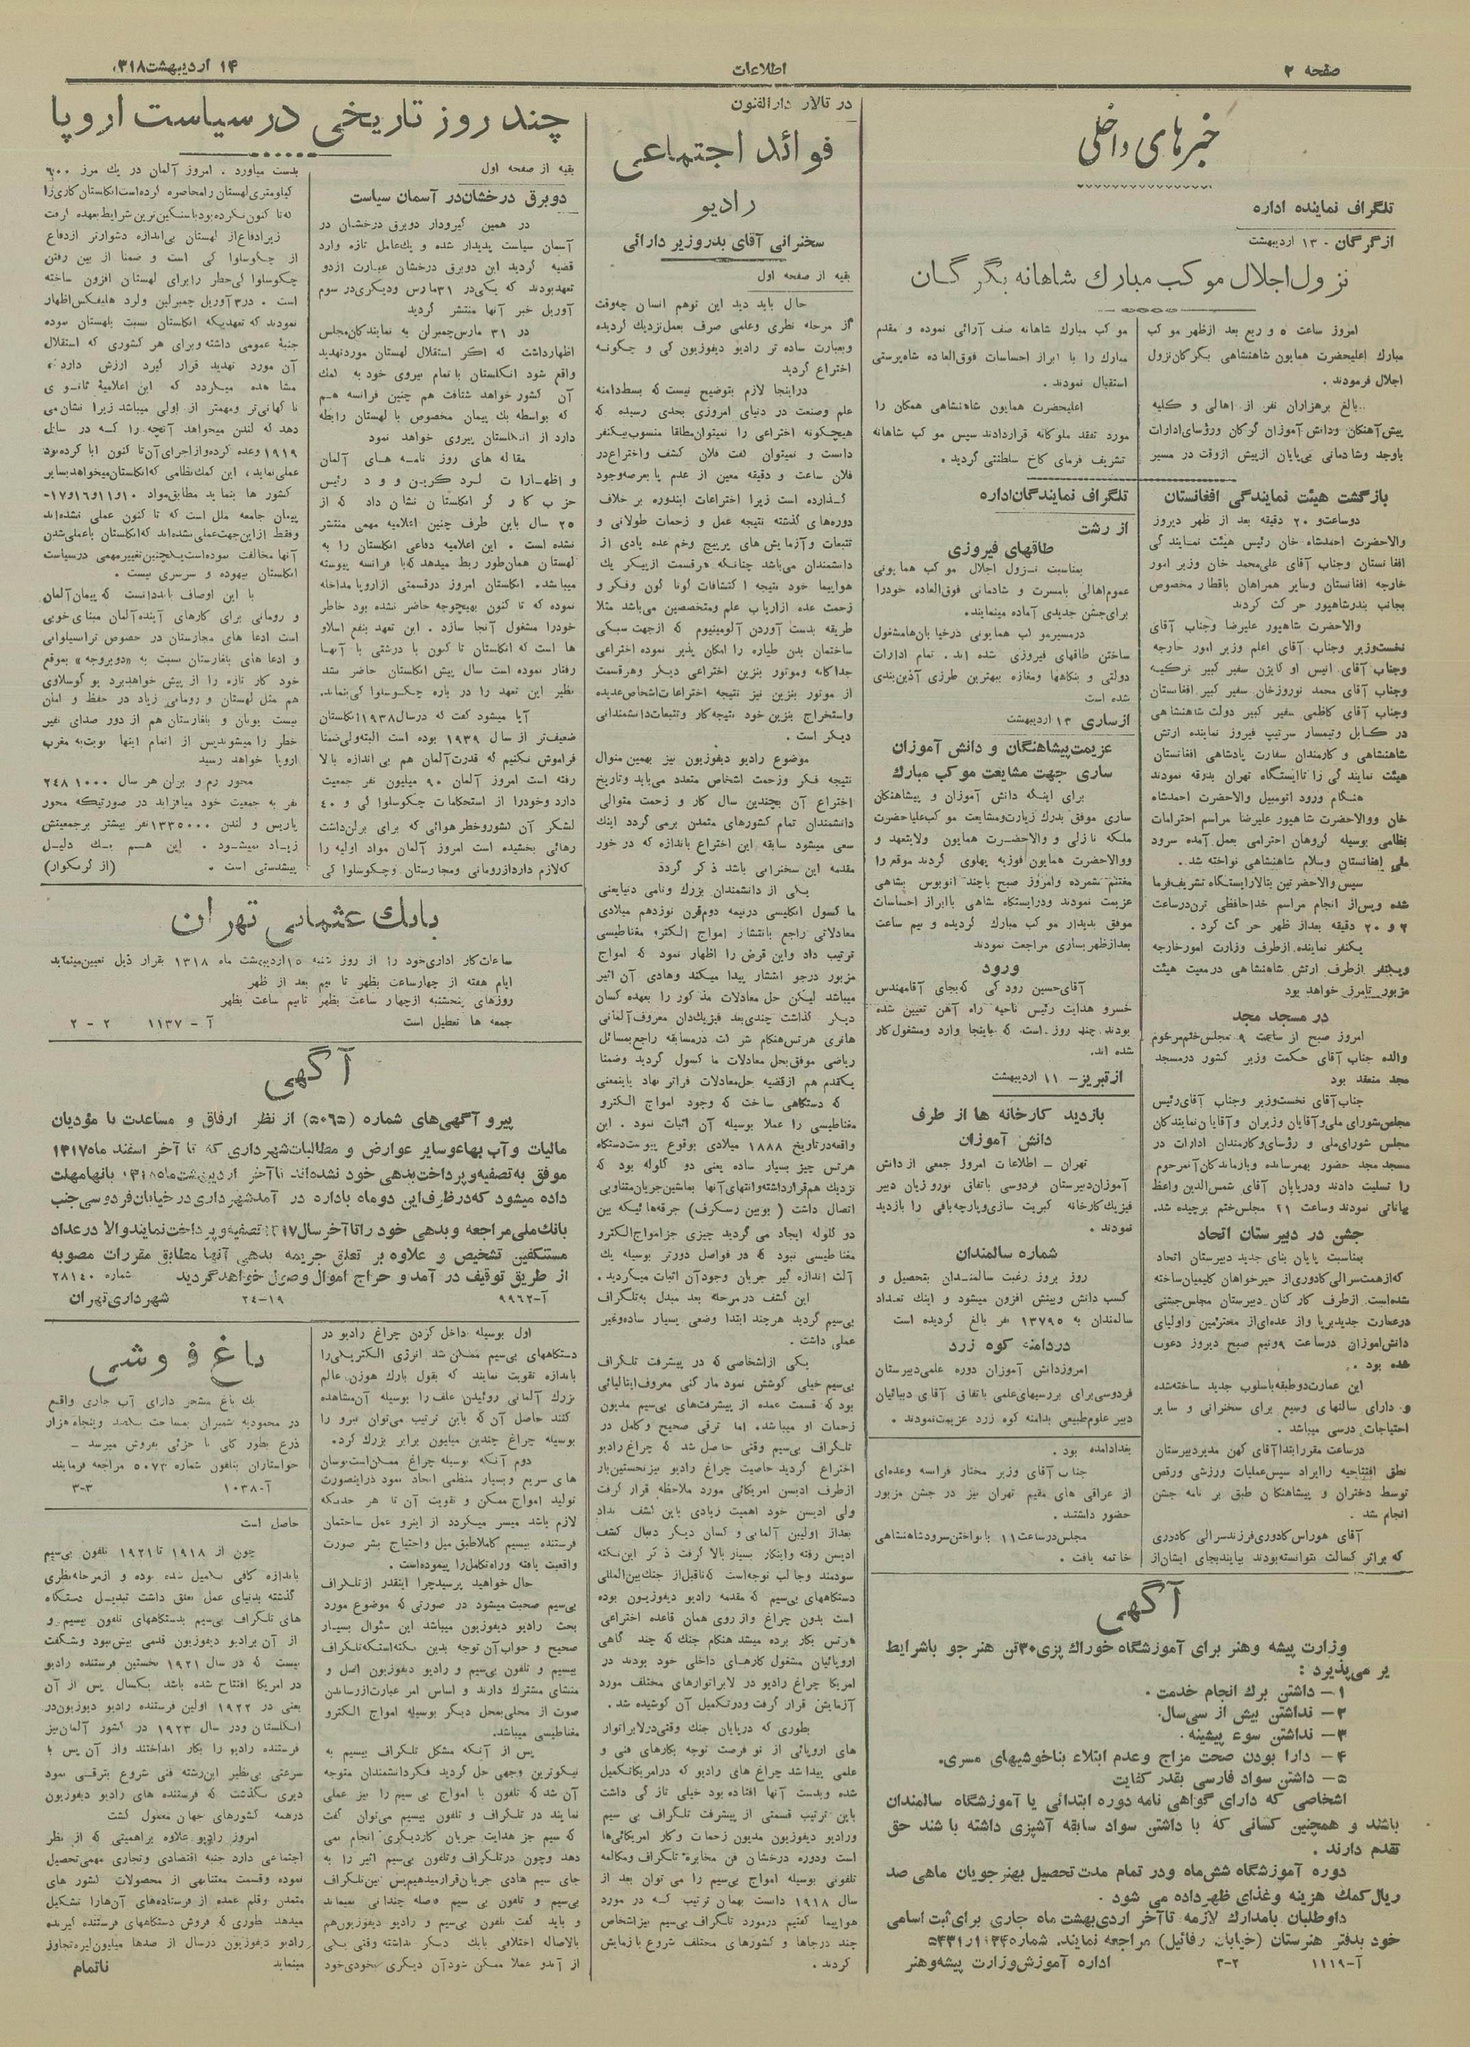 صفحه ۲
اطلاعات
۱۴ اردیبهشت ۱۳۱۸
خبرهای داخلی
تلگراف نماینده اداره
از گرگان - ۱۳ اردیبهشت
نزول اجلال موکب مبارک شاهانه بگرگان
امروز ساعت ۵ و ربع بعد ازظهر موکب
مبارک اعلیحضرت همایون شاهنشاهی بگرگان نزول
اجلال فرمودند.
بالغ برهزاران نفر از اهالی و کلیه
پیش‌آهنگان ودانش آموزان گرگان ورؤسای ادارات
باوجد وشادمانی بی‌پایان ازپیش ازوقت در مسیر
موکب مبارک شاهانه صف آرائی نموده و مقدم
مبارک را با ابراز احساسات فوق‌العاده شاه‌پرستی
استقبال نمودند.
اعلیحضرت همایون شاهنشاهی همگان را
مورد تفقد ملوکانه قراردادند سپس موکب شاهانه
تشریف فرمای کاخ سلطنتی گردید.
بازگشت هیئت نمایندگی افغانستان
دوساعت و ۲۰ دقیقه بعد از ظهر دیروز
والاحضرت احمدشاه خان رئیس هیئت نمایندگی
افغانستان وجناب آقای علی‌محمد خان وزیر امور
خارجه افغانستان وسایر همراهان باقطار مخصوص
بجانب بندرشاهپور حرکت کردند
والاحضرت شاهپور علیرضا وجناب آقای
نخست‌وزیر وجناب آقای اعلم وزیر امور خارجه
وجناب آقای محمد نوروزخان سفیر کبیر افغانستان
وجناب آقای کاظمی سفیر کبیر دولت شاهنشاهی
در کابل وتیمسار سرتیپ فیروز نماینده ارتش
شاهنشاهی و کارمندان سفارت پادشاهی افغانستان
هیئت نمایندگی را تاایستگاه تهران بدرقه نمودند
هنگام ورود اتومبیل والاحضرت احمدشاه
خان ووالاحضرت شاهپور علیرضا مراسم احترامات
نظامی بوسیله گروهان احترامی بعمل آمده سرود
ملی افغانستان وسلام شاهنشاهی نواخته شد.
سپس والاحضرتین بتالارایستگاه تشریف‌فرما
شده وپس‌از انجام مراسم خداحافظی ترن‌درساعت
۲ و ۲۰ دقیقه بعداز ظهر حرکت کرد.
یکنفر نماینده ازطرف وزارت امورخارجه
ویکنفر ازطرف ارتش شاهنشاهی درمعیت هیئت
مزبور تامرز خواهد بود
در مسجد مجد
امروز صبح از ساعت ۹ مجلس‌ختم مرحوم
والده جناب آقای حکمت وزیر کشور درمسجد
مجد منعقد بود
جناب‌آقای نخست‌وزیر وجناب آقای‌رئیس
مجلس‌شورای‌ملی‌وآقایان وزیران وآقایان‌نمایندگان
مجلس شورای‌ملی و رؤسای‌وکارمندان ادارات در
مسجد مجد حضور بهمرسانده وبازماندگان‌آنمرحوم
را تسلیت دادند ودرپایان آقای شمس‌الدین واعظ
بیاناتی نمودند وساعت ۲۱ مجلس‌ختم برچیده شد.
جشن در دبیرستان اتحاد
بمناسبت پایان بنای جدید دبیرستان اتحاد
شده‌است. ازطرف کارکنان دبیرستان مجلس‌جشنی
درعمارت جدیدبرپا واز عده‌ای‌از محترمین واولیای
دانش‌آموزان درساعت ۹ونیم صبح دیروز دعوت
شده بود.
این عمارت‌دوطبقه‌باسلوب جدید ساخته‌شده
و دارای سالنهای وسیع برای سخنرانی و سایر
احتیاجات درسی میباشد.
درساعت مقررابتداآقای کهن مدیردبیرستان
نطق افتتاحیه راایراد سپس‌عملیات ورزشی ورقص
توسط دختران و پیشاهنگان طبق برنامه جشن
انجام شد.
آقای هوراس‌کادوری‌فرزندسرالی کادوری
که براثر کسالت نتوانسته‌بودند بیایندبجای ایشان‌از
بغدادآمده بود.
جناب آقای وزیر مختار فرانسه وعده‌ای
از عراقی های مقیم تهران نیز در جشن مزبور
حضور داشتند.
مجلس‌درساعت ۱۱ بانواختن‌سرودشاهنشاهی
خاتمه یافت.
تلگراف نمایندگان‌اداره
از رشت
طاقهای فیروزی
بمناسبت نزول اجلال موکب همایونی
عموم‌اهالی بامسرت و شادمانی فوق‌العاده خودرا
برای‌جشن جدیدی آماده مینمایند.
درمسیرموکب همایونی درخیابان‌هامشغول
ساختن طاقهای فیروزی شده اند. تمام ادارات
دولتی و بنگاهها ومغازه ببهترین طرزی آذین‌بندی
شده است
ازساری ۱۳ اردیبهشت
عزیمت‌پیشاهنگان و دانش آموزان
ساری جهت مشایعت موکب مبارک
برای اینکه دانش آموزان و پیشاهنگان
ساری موفق بدرک زیارت‌ومشایعت موکب‌علیاحضرت
ملکه نازلی و والاحضرت همایون ولایتعهد و
ووالاحضرت همایون فوزیه پهلوی گردند موقع را
مغتنم شمرده وامروز صبح باچند اتوبوس بشاهی
عزیمت نمودند ودرایستگاه شاهی باابراز احساسات
موفق بدیدار موکب مبارک گردیده و نیم ساعت
بعدازظهر بساری مراجعت نمودند
ورود
آقای‌حسین رودکی که‌بجای آقامهندس
خسرو هدایت رئیس ناحیه راه آهن تعیین شده
بودند چند روز است که باینجا وارد ومشغول‌کار
شده اند.
از تبریز - ۱۱ اردیبهشت
بازدید کارخانه ها از طرف
دانش آموزان
تهران - اطلاعات امروز جمعی ازدانش
آموزان‌دبیرستان فردوسی باتفاق نوروزیان دبیر
فیزیک‌کارخانه کبریت سازی‌وپارچه‌بافی را بازدید
نمودند.
شماره سالمندان
روز بروز رغبت سالمندان بتحصیل و
کسب دانش وبینش افزون میشود و اینک تعداد
سالمندان به ۱۳۷۹۵ نفر بالغ گردیده است
دردامنه کوه زرد
امروزدانش آموزان دوره علمی‌دبیرستان
فردوسی‌برای بررسیهای‌علمی باتفاق آقای دیبائیان
دبیر علوم‌طبیعی بدامنه کوه زرد عزیمت‌نمودند.
آگهی
وزارت پیشه وهنر برای آموزشگاه خوراک پزی۳۰تن هنرجو باشرایط
زیر می‌پذیرد:
۱- داشتن برک انجام خدمت.
۲- نداشتن بیش از سی‌سال.
۳- نداشتن سوء پیشینه.
۴- دارا بودن صحت مزاج وعدم ابتلاء بناخوشیهای مسری.
۵- داشتن سواد فارسی بقدر کفایت
اشخاصی که دارای گواهی نامه دوره ابتدائی یا آموزشگاه سالمندان
باشند و همچنین کسانی که با داشتن سواد سابقه آشپزی داشته باشند حق
تقدم دارند.
دوره آموزشگاه شش‌ماه ودر تمام مدت تحصیل بهنرجویان ماهی صد
ریال‌کمک هزینه وغذای ظهرداده می شود.
داوطلبان بامدارک لازمه تاآخر اردی‌بهشت ماه جاری برای‌ثبت اسامی
خود بدفتر هنرستان (خیابان رفائیل) مراجعه نمایند.
آ-۱۱۱۹
۳-۲
اداره آموزش‌وزارت پیشه‌وهنر
در تالار دارالفنون
فوائد اجتماعی
رادیو
سخنرانی آقای بدروزیر دارائی
بقیه از صفحه اول
حال باید دید این توهم انسان چه‌وقت
از مرحله نظری وعلمی صرف بعمل‌نزدیک گردیده
وبعبارت ساده تر رادیو دیفوزیون کی و چگونه
اختراع گردید
دراینجا لازم بتوضیح نیست که بسط‌دامنه
علم وصنعت در دنیای امروزی بحدی رسیده که
هیچگونه اختراعی را نمیتوان‌مطلقا منسوب‌بیکنفر
دانست و نمیتوان گفت فلان کشف واختراع‌در
فلان ساعت و دقیقه معین از عدم پا بعرصه‌وجود
گذارده است زیرا اختراعات ایندوره بر خلاف
دوره‌های گذشته نتیجه عمل و زحمات طولانی و
تتبعات وآزمایش های پرپیچ وخم عده زیادی از
دانشمندان می‌باشد چنانکه هرقسمت ازپیکر یک
هواپیما خود نتیجه اکتشافات گوناگون وفکر و
زحمت عده ازارباب علم ومتخصصین می‌باشد مثلا
طریقه بدست آوردن آلومینیوم که ازجهت سبکی
ساختمان بدن طیاره را امکان پذیر نموده اختراعی
جداگانه وموتور بنزین اختراعی دیگر وهرقسمت
از موتور بنزین نیز نتیجه اختراعات‌اشخاص‌عدیده
واستخراج بنزین خود نتیجه‌کار وتتبعات‌دانشمندانی
دیگر است.
موضوع رادیو دیفوزیون نیز بهمین منوال
نتیجه فکر وزحمت اشخاص متعدد می‌باید وتاریخ
اختراع آن بچندین سال کار و زحمت متوالی
دانشمندان تمام کشورهای متمدن برمی گردد اینک
سعی میشود سابقه این اختراع باندازه که در خور
مقدمه این سخنرانی باشد ذکر گردد
یکی از دانشمندان بزرگ ونامی دنیایعنی
ماکسول انگلیسی درنیمه دوم‌قرن نوزدهم میلادی
معادلاتی راجع بانتشار امواج الکترو مغناطیسی
ترتیب داد واین فرض را اظهار نمود که امواج
مزبور درجو انتشار پیدا میکند وهادی آن اثیر
میباشد لیکن حل معادلات مذکور را بعهده کسان
دیگر گذاشت چندی‌بعد فیزیک‌دان معروف‌آلمانی
هانری هرتس‌هنگام شرکت درمسابقه راجع بمسائل
ریاضی موفق‌بحل معادلات ماکسول گردید وضمنا
یکقدم هم ازقضیه حل‌معادلات فراتر نهاد باینمعنی
که دستگاهی ساخت که وجود امواج الکترو
مغناطیسی را عملا بوسیله آن اثبات نمود. این
واقعه‌درتاریخ ۱۸۸۸ میلادی بوقوع پیوست‌دستگاه
هرتس چیز بسیار ساده یعنی دو گلوله بود که
نزدیک هم‌قرارداشته‌وانتهای آنها بماشین‌جریان‌متناوبی
اتصال داشت (بوبین رمکرف) جرقه‌هائیکه بین
دو گلوله ایجاد می گردید چیزی جزامواج‌الکترو
مغناطیسی نبود که در فواصل دورتر بوسیله یک
آلت اندازه گیر جریان وجودآن اثبات میگردید.
این کشف درمرحله بعد مبدل به‌تلگراف
بی‌سیم گردید هرچند ابتدا وضعی بسیار ساده‌وغیر
عملی داشت.
یکی ازاشخاصی که در پیشرفت تلگراف
بی‌سیم خیلی کوشش نمود مارکنی معروف‌ایتالیائی
بود که قسمت عمده از پیشرفت‌های بی‌سیم مدیون
زحمات او میباشد. اما ترقی صحیح وکامل در
تلگراف بی‌سیم وقتی حاصل شد که چراغ رادیو
اختراع گردید خاصیت چراغ رادیو نیزنخستین‌بار
ازطرف ادیسن امریکائی مورد ملاحظه قرار گرفت
ولی ادیسن خود اهمیت زیادی باین کشف نداد
بعداز اولیین آلمانی و کسان دیگر دنبال کشف
ادیسن رفته وابتکار بسیار بالا گرفت ذکر این‌نکته
سودمند وجالب توجه‌است که‌تاقبل‌از جنک‌بین‌المللی
دستگاههای بی‌سیم که مقدمه رادیو دیفوزیون بوده
است بدون چراغ وازروی همان قاعده اختراعی
هرتس بکار برده میشد هنگام جنک که چند گاهی
اروپائیان مشغول کارهای داخلی خود بودند در
امریکا چراغ رادیو در لابراتوارهای مختلف مورد
آزمایش قرار گرفت ودرتکمیل آن کوشیده شد.
بطوری که درپایان جنک وقتی‌درلابراتوار
های اروپائی از نو فرصت توجه بکارهای فنی و
علمی پیداشد چراغ های رادیو که درامریکاتکمیل
شده وبدست آنها افتاده بود خیلی تازگی داشت
باین ترتیب قسمتی از پیشرفت تلگراف بی سیم
ورادیو دیفوزیون مدیون زحمات وکار امریکائی‌ها
است ودوره درخشان فن مخابره تلگراف ومکالمه
تلفونی بوسیله امواج بی‌سیم را می توان بعد از
سال ۱۹۱۸ دانست بهمان ترتیب که در مورد
هواپیما گفتیم درمورد تلگراف بی‌سیم نیزاشخاص
چند درجاها و کشورهای مختلف شروع بازمایش
کردند.
چند روز تاریخی در سیاست اروپا
بقیه از صفحه اول
دوبرق درخشان‌در آسمان سیاست
در همین گیرودار دوبرق درخشان در
آسمان سیاست پدیدار شده و یک‌عامل تازه وارد
قضیه گردید این دوبرق درخشان عبارت ازدو
تعهدبودند که یکی‌در ۳۱مارس ودیگری‌در سوم
آوریل خبر آنها منتشر گردید
در ۳۱ مارس‌چمبرلن به نمایندگان‌مجلس
اظهارداشت که اگر استقلال لهستان موردتهدید
واقع شود انگلستان باتمام نیروی خود به کمک
آن کشور خواهد شتافت هم چنین فرانسه هم
که بواسطه یک پیمان مخصوص با لهستان رابطه
دارد از انگلستان پیروی خواهد نمود
مقاله های روز نامه های آلمان
و اظهارات لرد گرین وود رئیس
حزب کارگر انگلستان نشان داد که از
۲۵ سال باین طرف چنین اعلامیه مهمی منتشر
نشده است. این اعلامیه دفاعی انگلستان را به
لهستان همان‌طور ربط میدهد که‌با فرانسه پیوسته
میباشد. انگلستان امروز درقسمتی ازاروپا مداخله
نموده که تا کنون بهیچوجه حاضر نشده بود خاطر
خودرا مشغول آنجا سازد. این تعهد بنفع اسلاو
ها است که انگلستان تا کنون با درشتی با آنها
رفتار نموده است سال پیش انگلستان حاضر نشد
نظیر این تعهد را در باره چکوسلواکی‌بنماید.
آیا میشود گفت که درسال۱۹۳۸انگلستان
ضعیف‌تر از سال ۱۹۳۹ بوده است البته‌ولی‌ضمنا
فراموش نکنیم که قدرت‌آلمان هم بی‌اندازه بالا
رفته است امروز آلمان ۹۰ میلیون نفر جمعیت
دارد وخودرا از استحکامات چکوسلواکی و ۴۰
لشگر آن کشوروخطر هوائی که برای برلن‌داشت
رهائی بخشیده است امروز آلمان مواد اولیه را
که‌لازم داردازرومانی ومجارستان وچکوسلواکی
بدست میاورد. امروز آلمان در یک مرز ۶۰۰
کیلومتری لهستان رامحاصره کرده‌است انگلستان کاری‌را
که تاکنون نکرده بودباسنگین‌ترین شرایط بعهده گرفت
زیرادفاع‌از لهستان بی‌اندازه دشوارتر ازدفاع
از چکوسلواکی است و ضمنا از بین رفتن
چکوسلواکی‌خطر رابرای لهستان افزون ساخته
است. در۳ آوریل چمبرلین ولرد هلیفکس‌اظهار
نمودند که تعهدیکه انگلستان نسبت بلهستان نموده
جنبهٔ عمومی داشته وبرای هر کشوری که استقلال
آن مورد تهدید قرار گیرد ارزش دارد
مشاهده میگردد که این اعلامیهٔ ثانوی
ناگهانی‌تر ومهمتر از اولی میباشد زیرا نشان‌می
دهد که لندن میخواهد آنچه را که در سال
۱۹۱۹ وعده کرده‌وازاجرای آن‌تاکنون ابا کرده‌بود
عملی‌نماید، این کمک‌نظامی که‌انگلستان‌میخواهدبسایر
کشور ها بنماید مطابق‌مواد ۱۰و۱۱و۱۶و۱۷-
پیمان جامعه ملل است که تا کنون عملی نشده‌اند
وفقط ازاین‌جهت‌عملی‌نشده‌اند که‌انگلستان باعملی‌شدن
آنها مخالفت نموده‌است‌یک‌چنین‌تغییرمهمی درسیاست
انگلستان بیهوده و سرسری نیست.
با این اوصاف بایددانست که پیمان‌آلمان
و رومانی برای کارهای آینده‌آلمان مبنای‌خوبی
است ادعا های مجارستان در خصوص ترانسیلوانی
و ادعا های بلغارستان نسبت به «دوبروجه» بموقع
خود کار تازه را از پیش خواهدبرد یوگوسلاوی
هم مثل لهستان و رومانی زیاد در حفظ و امان
نیست یونان و بلغارستان هم از دور صدای نفیر
خطر را میشنوندپس از اتمام اینها نوبت‌به مغرب
اروپا خواهد رسید
محور رم و برلن هر سال ۲۴۸۱۰۰۰
نفر به جمعیت خود میافزاید در صورتیکه محور
پاریس و لندن ۱۳۳۵۰۰۰نفر بیشتر برجمعیتش
زیاد نمیشود. این هم یک دلیل
پیشدستی است. (از گرنگوار)
بانک عثمانی تهران
ساعات‌کار اداری‌خود را از روز شنبه ۱۵اردیبهشت ماه ۱۳۱۸ بقرار ذیل تعیین‌مینماید
ایام هفته از چهارساعت بظهر تا نیم بعد از ظهر
روزهای پنجشنبه ازچهار ساعت بظهر تانیم ساعت بظهر
جمعه ها تعطیل است
آ - ۱۱۳۷
۲ - ۲
آگهی
پیرو آگهی‌های شماره (۵۰۶۵) از نظر ارفاق و مساعدت با مؤدیان
مالیات و آب بهاءوسایر عوارض و مطالبات‌شهرداری که تا آخر اسفند ماه۱۳۱۷
موفق به‌تصفیه‌وپرداخت‌بدهی خود نشده‌اند تاآخر اردیبهشت‌ماه۱۳۱۸ بانهامهلت
داده میشود که‌درظرف‌این دوماه باداره درآمدشهرداری‌درخیابان‌فردوسی‌جنب
بانک‌ملی‌مراجعه وبدهی خود راتاآخرسال۱۳۱۷ تصفیه‌وپرداخت‌نمایندوالا درعداد
مستنکفین تشخیص و علاوه بر تعلق جریمه بدهی آنها مطابق مقررات مصوبه
از طریق توقیف درآمد و حراج اموال وصول خواهدگردید شماره ۲۸۱۴۰
آ-۹۹۶۲
۲۴-۱۹
شهرداری‌تهران
باغ فروشی
یک باغ مشجر دارای آب جاری واقع
در محمودیه شمیران بمساحت سیصد وپنجاه‌هزار
ذرع بطور کلی یا جزئی بفروش میرسد -
خواستاران بتلفون شماره ۵۰۷۳ مراجعه فرمایند
آ-۱۰۳۸۰
۳-۳
اول بوسیله داخل کردن چراغ رادیو در
دستگاههای بی‌سیم ممکن شد انرژی الکتریکی‌را
باندازه تقویت نمایند که بقول بارک هوزن عالم
بزرک آلمانی روئیدن علف‌را بوسیله آن‌مشاهده
کنند حاصل آن که باین ترتیب می‌توان نیرو را
بوسیله چراغ چندین میلیون برابر بزرک کرد.
دوم آنکه بوسیله چراغ ممکن‌است‌نوسان
های سریع وبسیار منظمی ایجاد نمود دراینصورت
تولید امواج ممکن و تقویت آن تا هر حدیکه
لازم باشد میسر میگردد از اینرو عمل ساختمان
فرستنده بیسیم کاملاطبق میل واحتیاج بشر صورت
واقعیت یافته وراه‌تکامل‌را پیموده‌است.
حال خواهید پرسیدچرا اینقدر ازتلگراف
بی‌سیم صحبت میشود در صورتی که موضوع مورد
بحث رادیو دیفوزیون میباشد این سئوال بسیار
صحیح وجواب‌آن توجه بدین نکته‌استکه‌تلگراف
بیسیم و تلفون بی‌سیم و رادیو دیفوزیون اصل و
منشای مشترک دارند و اساس امر عبارت‌ازرساندن
صوت از محلی‌بمحل دیگر بوسیله امواج الکترو
مغناطیسی میباشد.
پس از آنکه مشکل تلگراف بیسیم به
نیکوترین وجهی حل گردید فکردانشمندان متوجه
آن شدکه تلفون با امواج بی‌سیم را نیز عملی
نمایند در تلگراف و تلفون بیسیم می‌توان گفت
که سیم جز هدایت جریان کاردیگری انجام نمی
دهد وچون درتلگراف وتلفون بی‌سیم اثیر را به
جای سیم هادی جریان‌قرارمیدهیم‌پس بین‌تلگراف
بی‌سیم و تلفون بی سیم فاصله چندانی نمیماند
و باید گفت تلفون بی‌سیم و رادیو دیفوزیون‌هم
بالاصاله اختلافی بایک دیگر نداشته وقتی یکی
از آندو عملا ممکن شودآن دیگری بخودی‌خود
حاصل است
چون از ۱۹۱۸ تا۱۹۲۱ تلفون بی‌سیم
باندازه کافی تکمیل شده بوده و ازمرحله‌نظری
گذشته بدنیای عمل تعلق داشت تبدیل دستگاه
های تلگراف بی‌سیم بدستگاههای تلفون بیسیم و
از آن برادیو دیفوزیون قدمی بیش‌نبود وشگفت
نیست که در سال ۱۹۲۱ نخستین فرستنده رادیو
در امریکا افتتاح شده باشد یکسال پس از آن
یعنی در ۱۹۲۲ اولین فرستنده رادیو دیوزیون‌در
انگلستان ودر سال ۱۹۲۳ در کشور آلمان‌نیز
فرستنده رادیو را بکار انداختند واز آن پس با
سرعتی بی‌نظیر این‌رشته فنی شروع بترقی نمود
دیری نگذشت که فرستنده های رادیو دیفوزیون
درهمه کشورهای جهان معمول گشت
امروز رادیو علاوه براهمیتی که از نظر
اجتماعی دارد جنبه اقتصادی وتجاری مهمی‌تحصیل
نموده وقسمت معتنابهی از محصولات کشور های
متمدن وقلم عمده از فرستاده‌های آن‌هارا تشکیل
میدهد بطوری که فروش دستگاههای فرستنده گیرنده
رادیو دیفوزیون درسال از صدها میلیون‌لیره‌تجاوز
مینماید
ناتمام